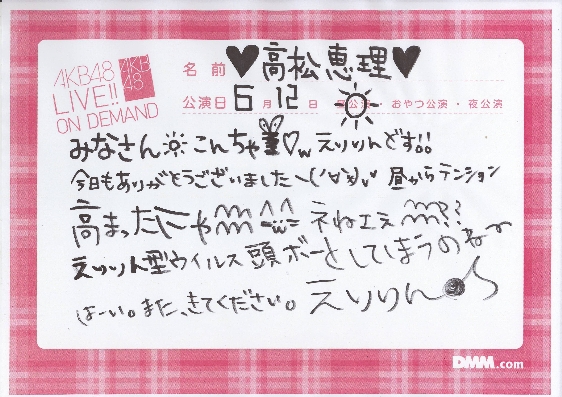 AKB48
LIVE!!
ON DEMAND
AKB
48
名前 ♥高松恵理♥
公演日 6月12日 昼公演・おやつ公演・夜公演
みなさん☼こんちゃ♡w えりりんどす!!
今日もありがとうございました＼(^∀^)ノ 昼からテンション
高まったにゃ^^=ω= ネねエえ??
えりりん型ウイルス頭ボーとしてしまうのねー
はーい。また、きてください。えりりん♪
DMM.com